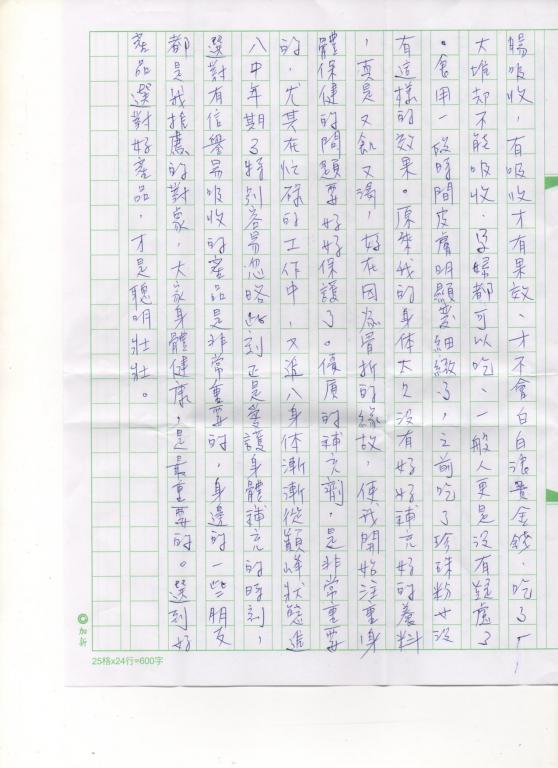 腸吸收，有吸收才有果效、才不會白白浪費金錢．吃了一
大堆却不能吸收．孕婦都可以吃、一般人更是沒有疑慮了
。食用一段時間皮膚明顯變細緻了，之前吃了珍珠粉也沒
有這樣的效果。原來我的身體太久沒有好好補充好的養料
，真是又飢又渴，好在因為骨折的緣故，使我開始注重身
體保健的問題要好好保護了。優質的補充劑．是非常重要
的．尤其在忙碌的工作中，又進入身体漸漸從顛峰狀態進
入中年期了特別容易忽略此刻正是愛護身體補充的時刻，
選對有信譽易吸收的產品是非常重要的，身邊的一些朋友
都是我推薦的對象，大家身體健康，是最重要的。選到好
產品選對好產品，才是聰明壯壯。
加新
25格x24行=600字